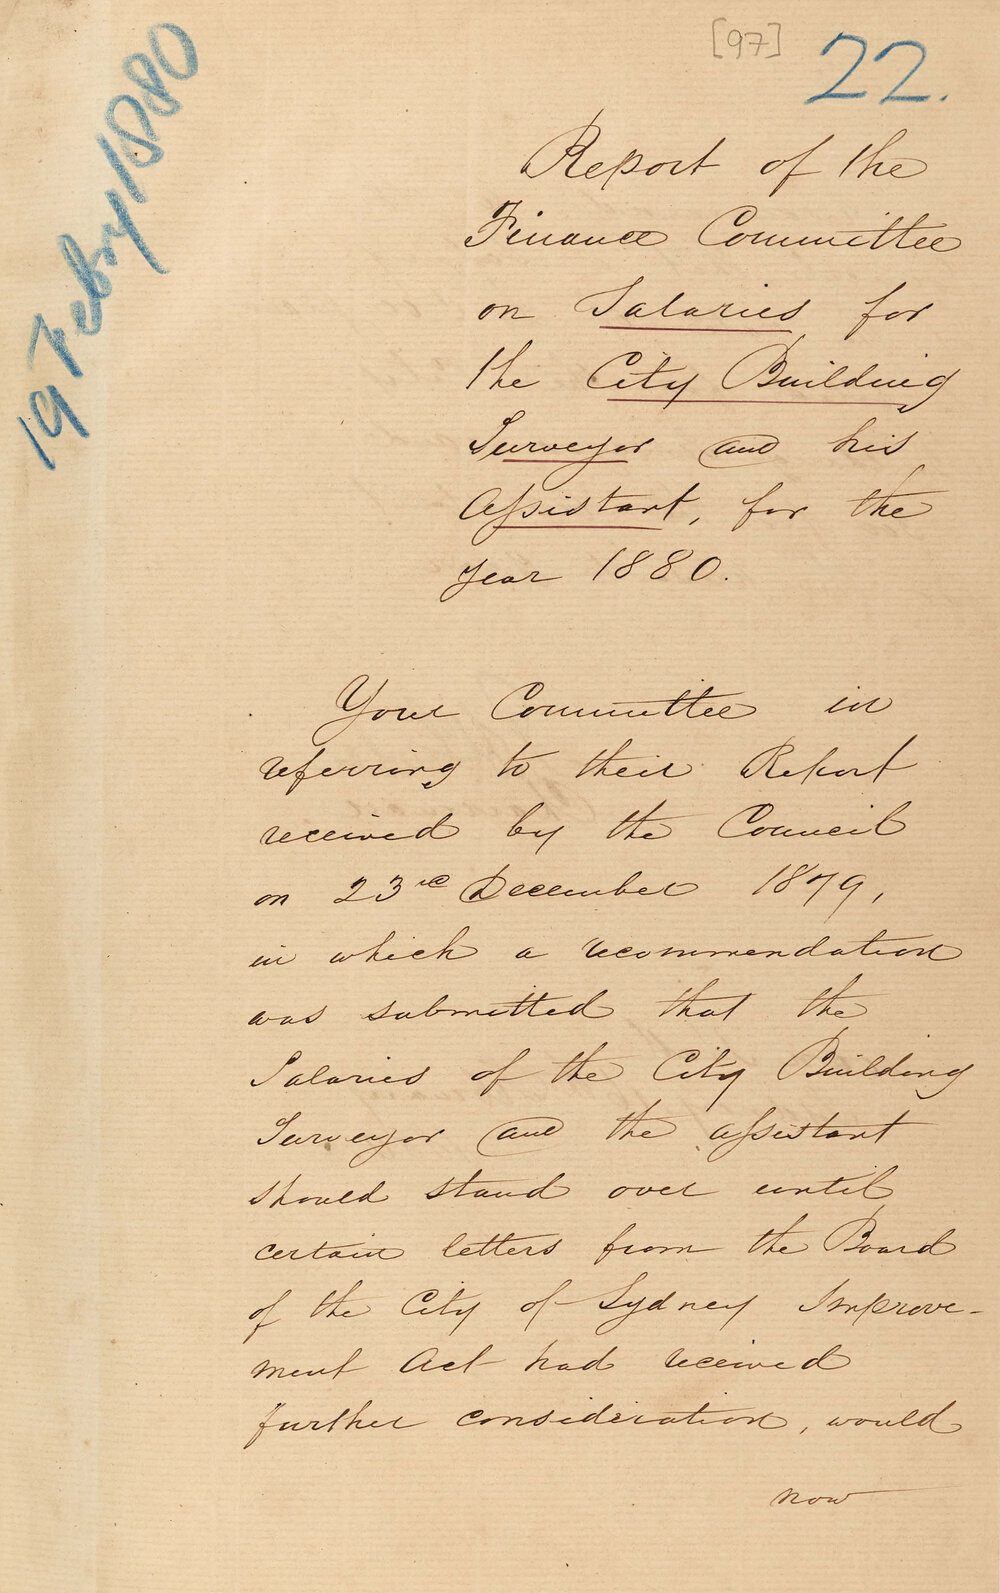 [97]
22.
19 Febry 1880
Report of the
Finance Committee
on Salaries for
the City Building
Surveyor and his
Assistant, for the
year 1880.
Your Committee in
referring to their Report
received by the Council
on 23rd December 1879,
in which a recommendation
was submitted that the
Salaries of the City Building
Surveyor and the assistant
should stand over until
certain letters from the Board
of the City of Sydney Improve-
ment Act had received
further consideration, would
now